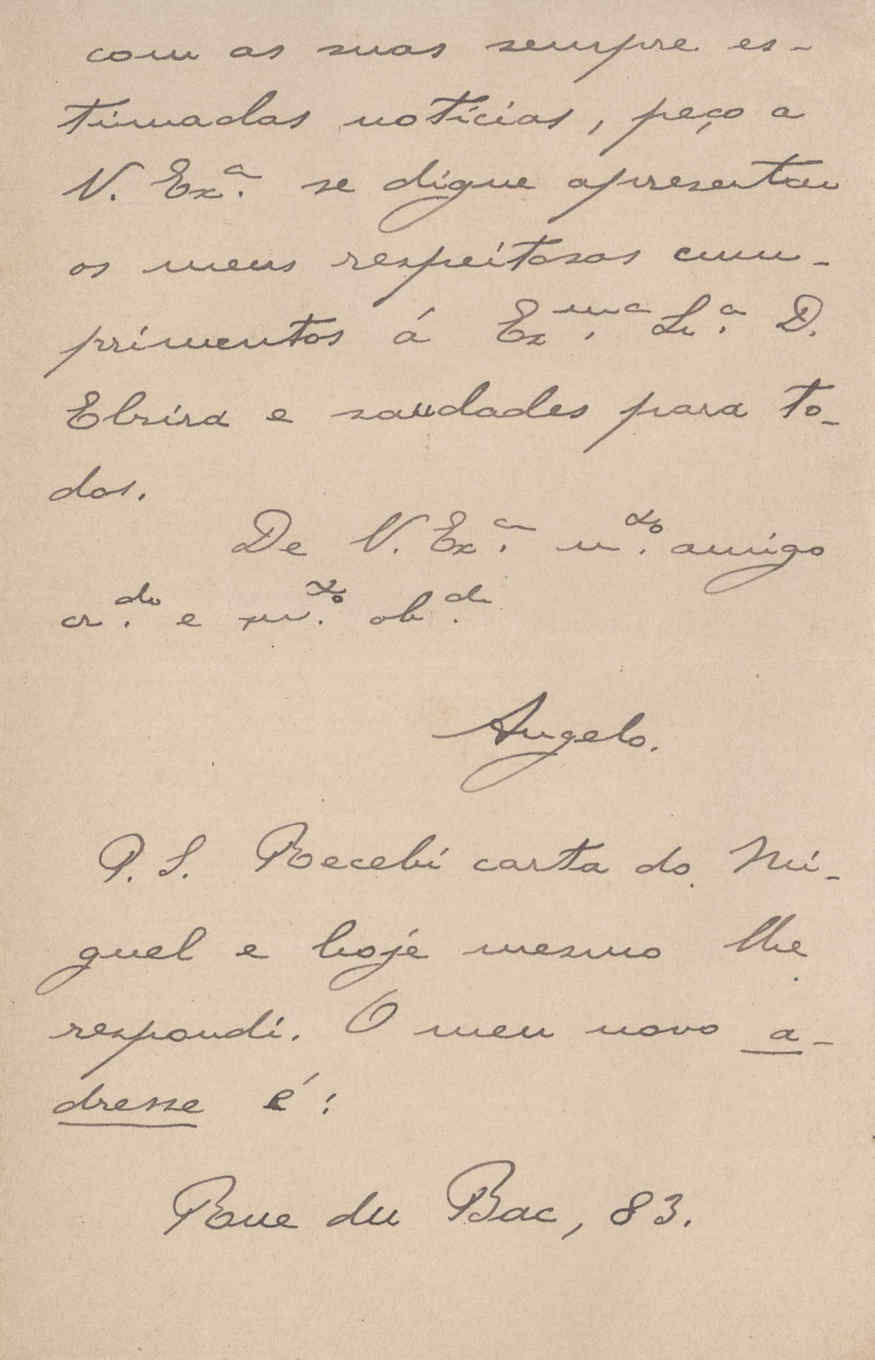 com as suas sempre es-
timadas noticias, peço a
V. Exª. se digne apresentar
os meus respeitosos cum-
primentos á Exᵐᵃ. Srª. D.
Elzira e saudades para to-
dos.
De V. Exª. mᵗᵒ. amigo
crᵈᵒ. e mᵗᵒ. obᵈᵒ.
Angelo.
P. S. Recebi carta do Mi-
guel e hoje mesmo lhe
respondi. O meu novo a-
dresse é:
Rue du Bac, 83.